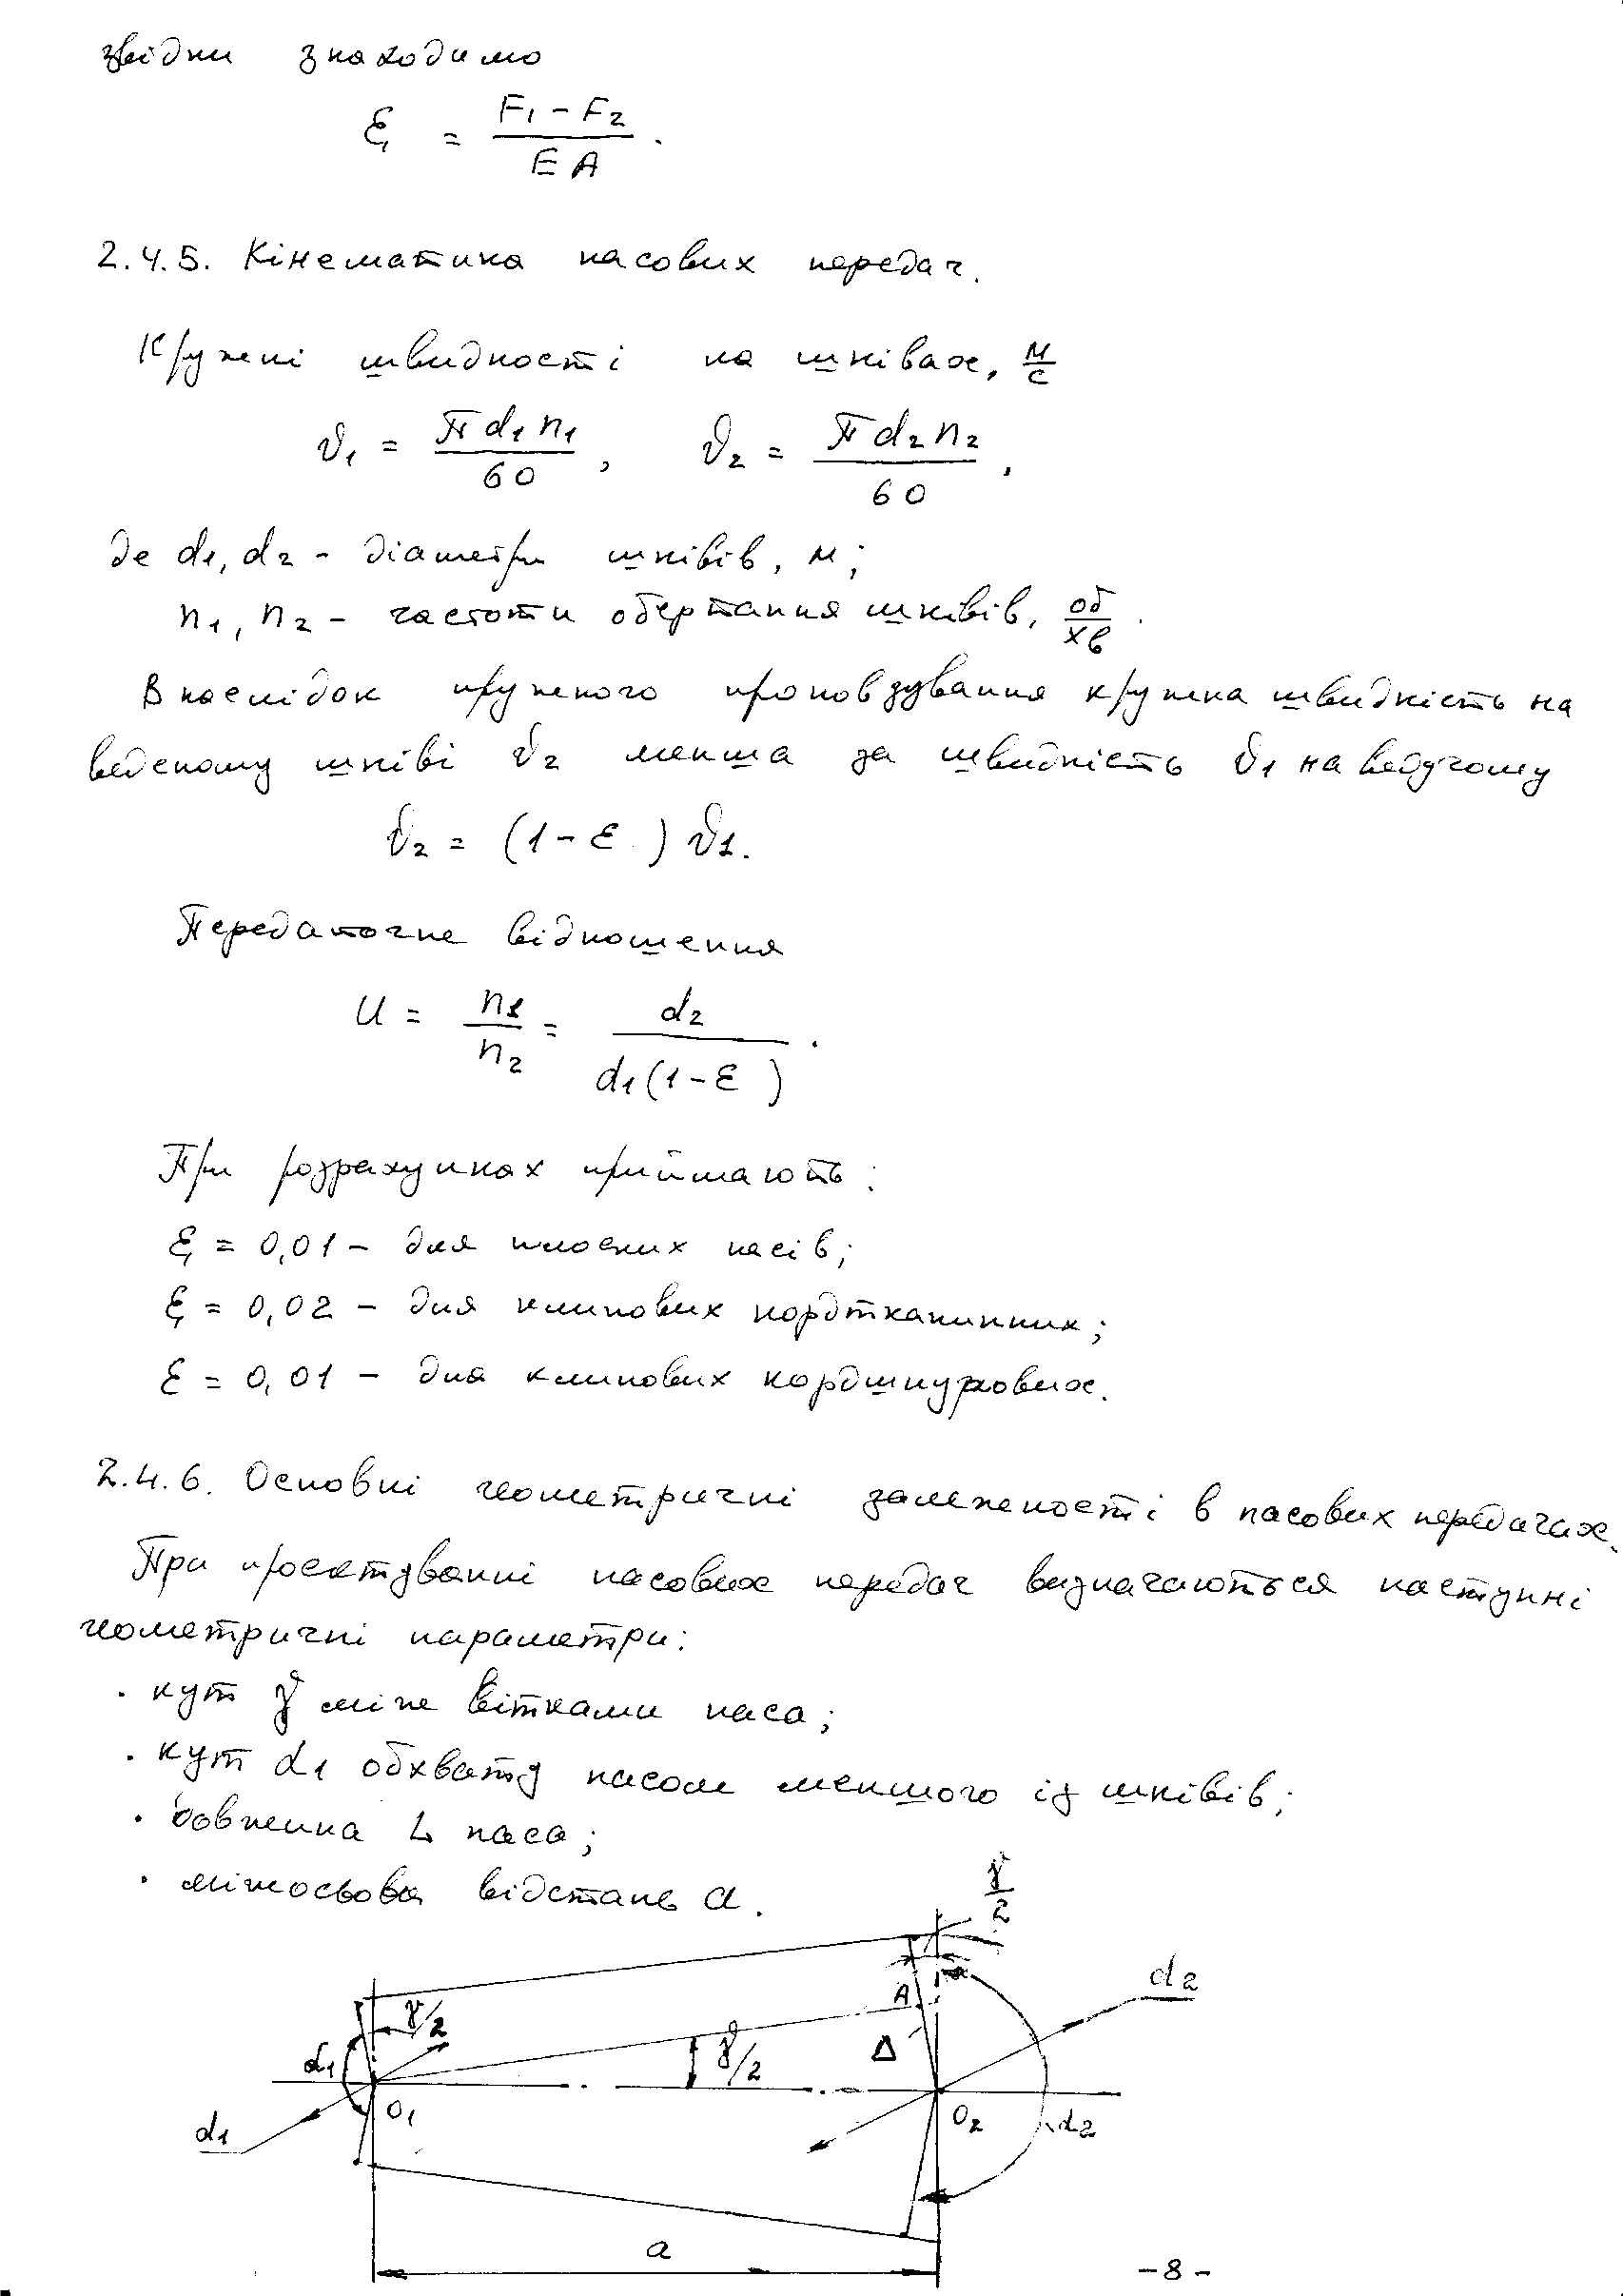 звідки знаходимо
ξ = (F₁ − F₂) / (E A).
2.4.5. Кінематика пасових передач.
Кружні швидкості на шківах, м/с
ϑ₁ = π d₁ n₁ / 60, ϑ₂ = π d₂ n₂ / 60,
де d₁, d₂ – діаметри шківів, м;
n₁, n₂ – частоти обертання шківів, об/хв.
Внаслідок пружного проковзування кружна швидкість на
веденому шківі ϑ₂ менша за швидкість ϑ₁ на ведучому
ϑ₂ = (1 − ε) ϑ₁.
Передаточне відношення
U = n₁ / n₂ = d₂ / d₁(1 − ε).
При розрахунках приймають:
ξ = 0,01 – для плоских пасів;
ξ = 0,02 – для клинових кордтканинних;
ξ = 0,01 – для клинових кордшнурових.
2.4.6. Основні геометричні залежності в пасових передачах.
При проектуванні пасових передач визначаються наступні
геометричні параметри:
· кут γ між вітками паса;
· кут α₁ обхвату пасом меншого із шківів;
· довжина L паса;
· міжосьова відстань a.
γ/2
d₂
A
γ/2
α₁
γ/2
Δ
O₁
O₂
d₁
α₂
a
– 8 –